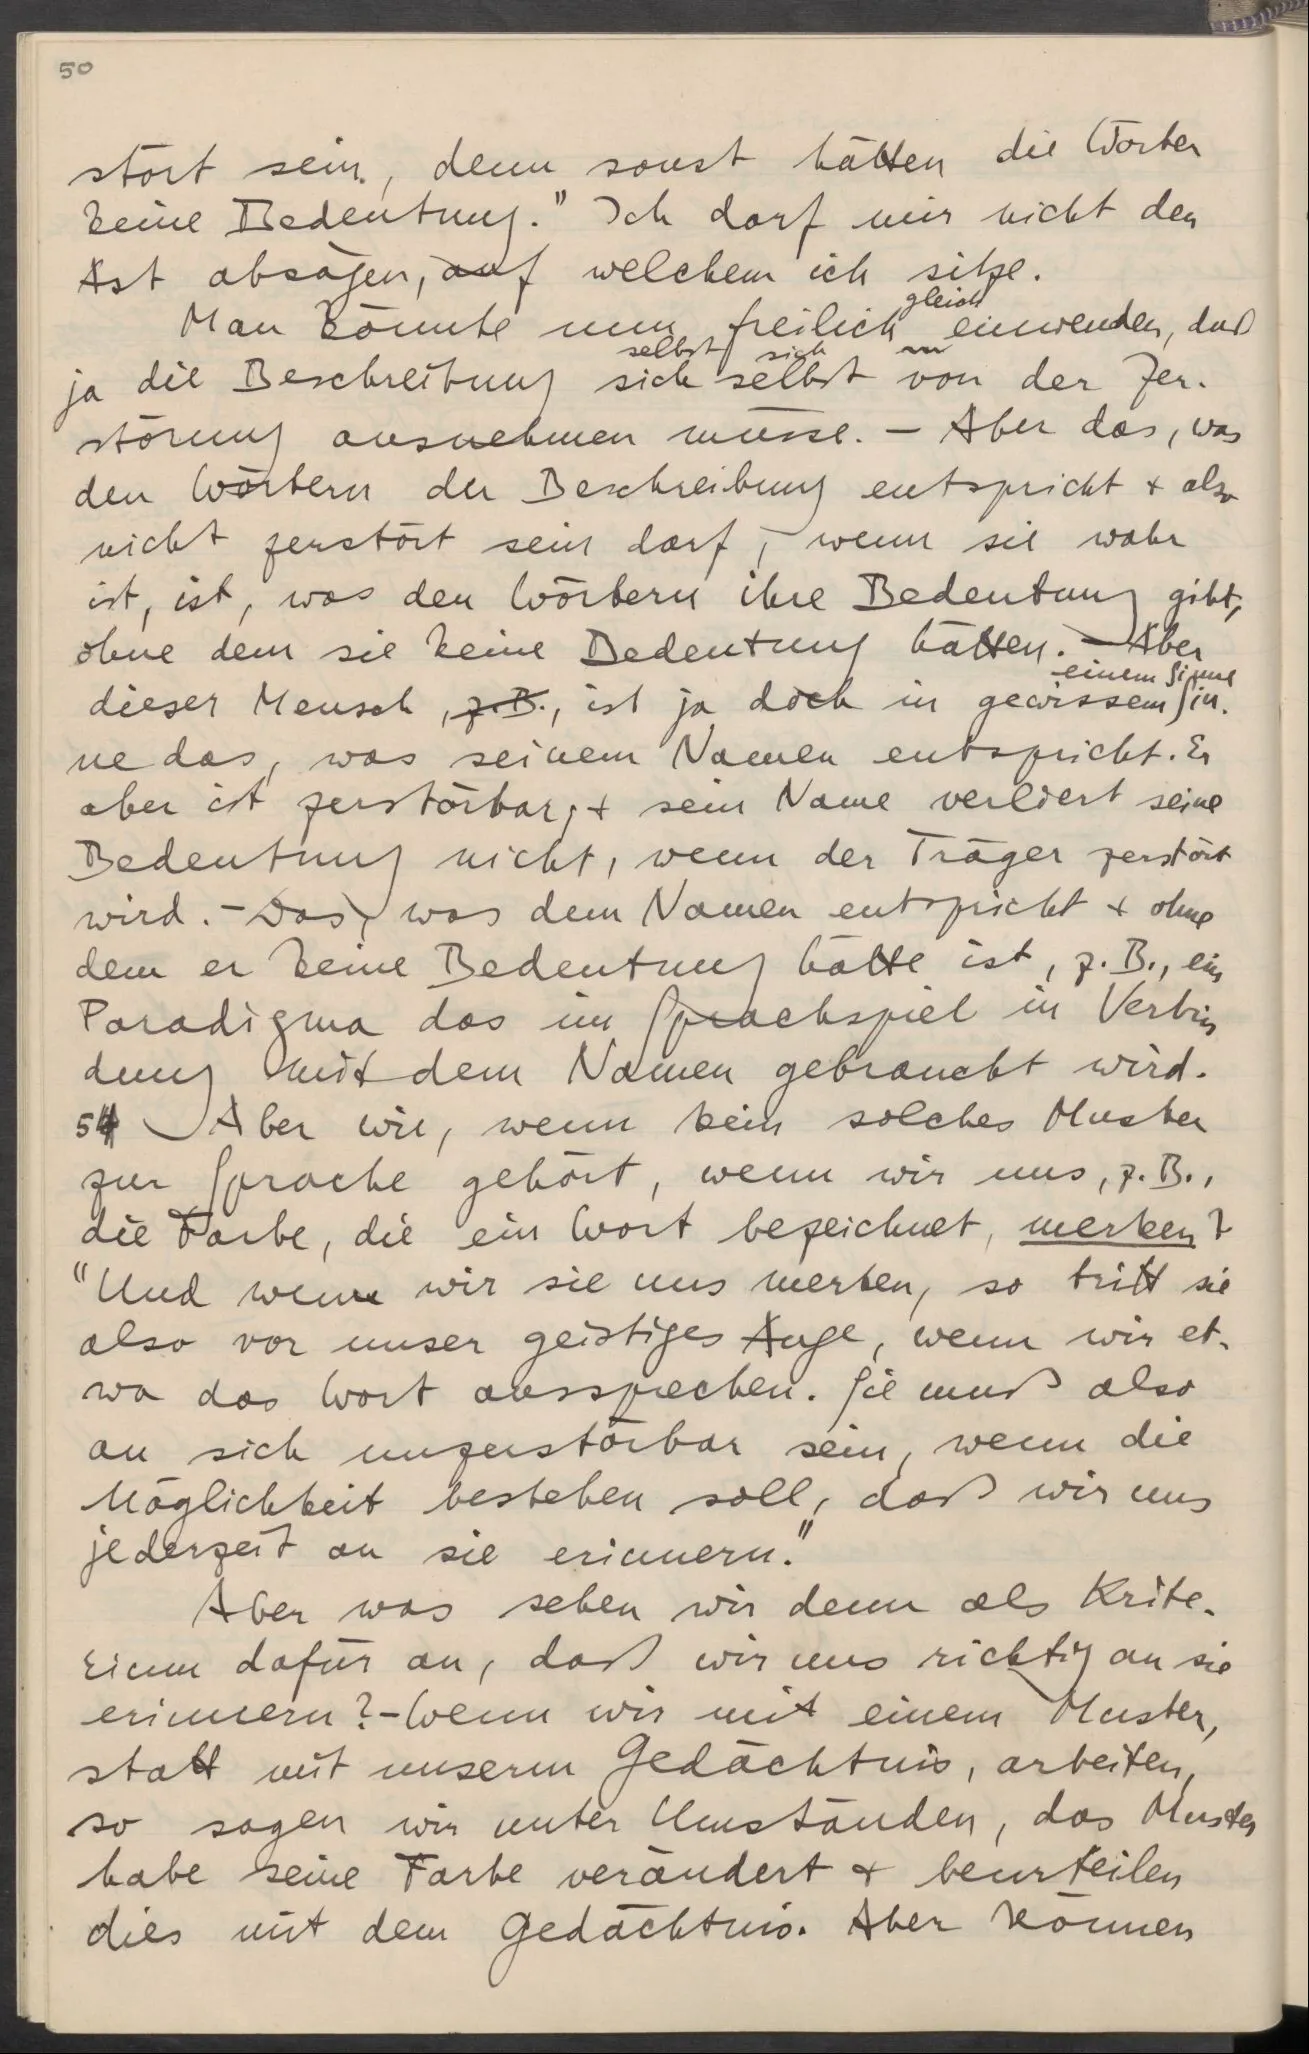 50
stört sein, denn sonst hätten die Wörter
keine Bedeutung." Ich darf mir nicht den
Ast absägen, auf welchem ich sitze.
gleich
Man könnte nun freilich einwenden, daß
selbst sich
ja die Beschreibung sich selbst von der Zer-
störung ausnehmen müsse. – Aber das, was
den Wörtern der Beschreibung entspricht + also
nicht zerstört sein darf, wenn sie wahr
ist, ist, was den Wörtern ihre Bedeutung gibt,
ohne dem sie keine Bedeutung hätten. – Aber
einem Sinne
dieser Mensch, z.B., ist ja doch in gewissem Sin-
ne das, was seinem Namen entspricht. Er
aber ist zerstörbar, + sein Name verliert seine
Bedeutung nicht, wenn der Träger zerstört
wird. – Das, was dem Namen entspricht + ohne
dem er keine Bedeutung hätte ist, z.B., ein
Paradigma das im Sprachspiel in Verbin
dung mit dem Namen gebraucht wird.
54 Aber wie, wenn kein solches Muster
zur Sprache gehört, wenn wir uns, z.B.,
die Farbe, die ein Wort bezeichnet, merken?
"Und wenn wir sie uns merken, so tritt sie
also vor unser geistiges Auge, wenn wir et-
wa das Wort aussprechen. Sie muß also
an sich unzerstörbar sein, wenn die
Möglichkeit bestehen soll, daß wir uns
jederzeit an sie erinnern."
Aber was sehen wir denn als Krite-
rium dafür an, daß wir uns richtig an sie
erinnern? – Wenn wir mit einem Muster,
statt mit unserm Gedächtnis, arbeiten,
so sagen wir unter Umständen, das Muster
habe seine Farbe verändert + beurteilen
dies mit dem Gedächtnis. Aber können